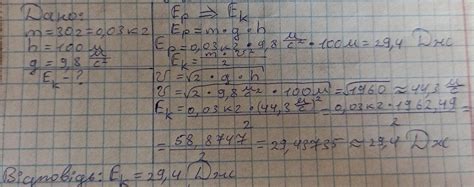 Дано:
m=30г=0,03кг
h=100 м
g=9,8 м/с²
Eк-?
Ep ⇒ Eк
Ep=m·g·h
Ep=0,03кг·9,8 м/с²·100м=29,4 Дж
Eк=m·v²/2
v=√2·g·h
v=√2·9,8 м/с²·100м=√1960≈44,3 м/с
Eк=0,03кг·(44,3 м/с)²/2=0,03кг·1962,49/2=
=58,8747/2=29,43735≈29,4 Дж
Відповідь: Eк=29,4 Дж